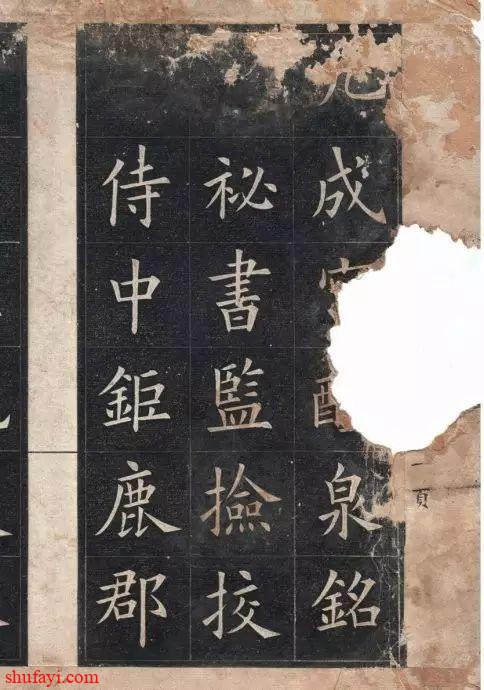 九成宮醴泉銘
祕書監撿挍
侍中鉅鹿郡
一頁
shufayi.com